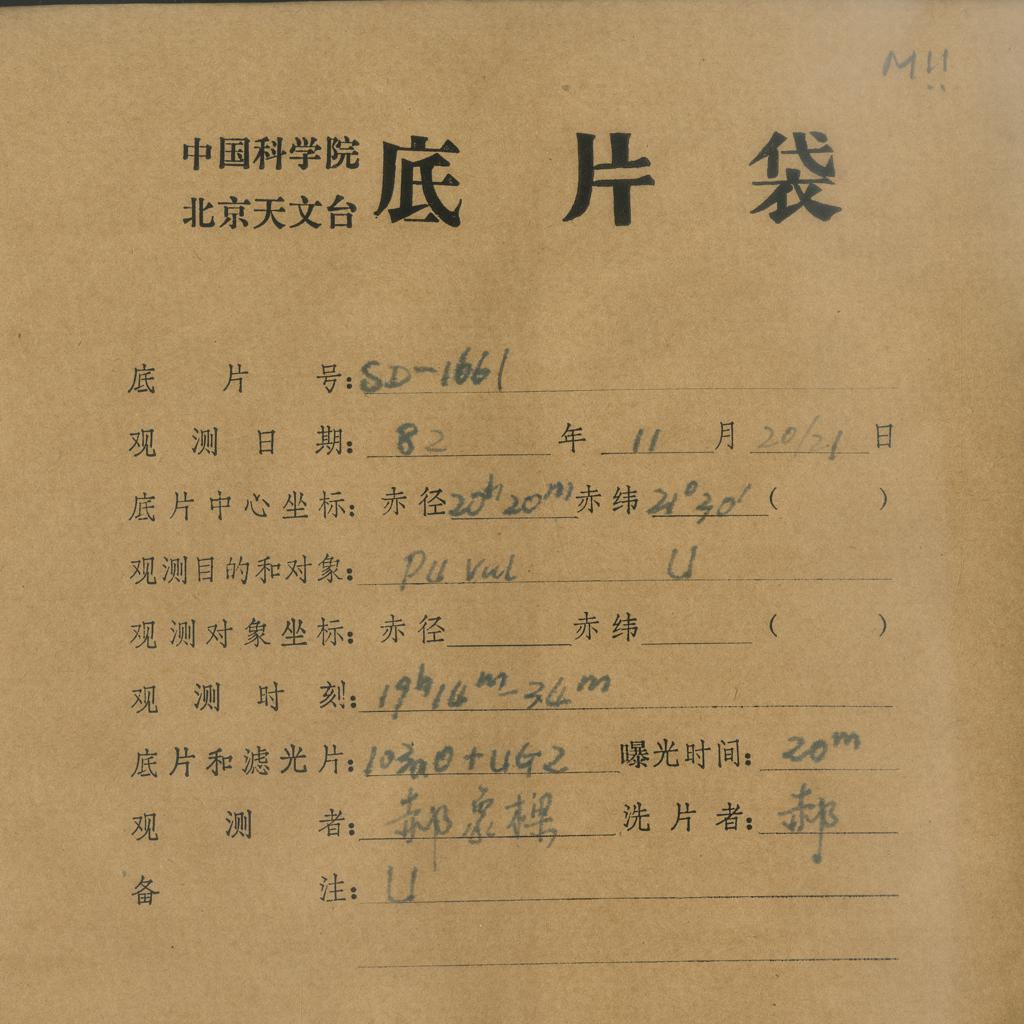 M11
中国科学院
北京天文台 底片袋
底片号: SD-1661
观测日期: 82 年 11 月 20/21 日
底片中心坐标: 赤径 20h20m 赤纬 21°30′ ( )
观测目的和对象: PU Vul U
观测对象坐标: 赤径 赤纬 ( )
观测时刻: 19h14m-34m
底片和滤光片: 103aO+UG2 曝光时间: 20m
观测者: 郝象樑 洗片者: 郝
备注: U